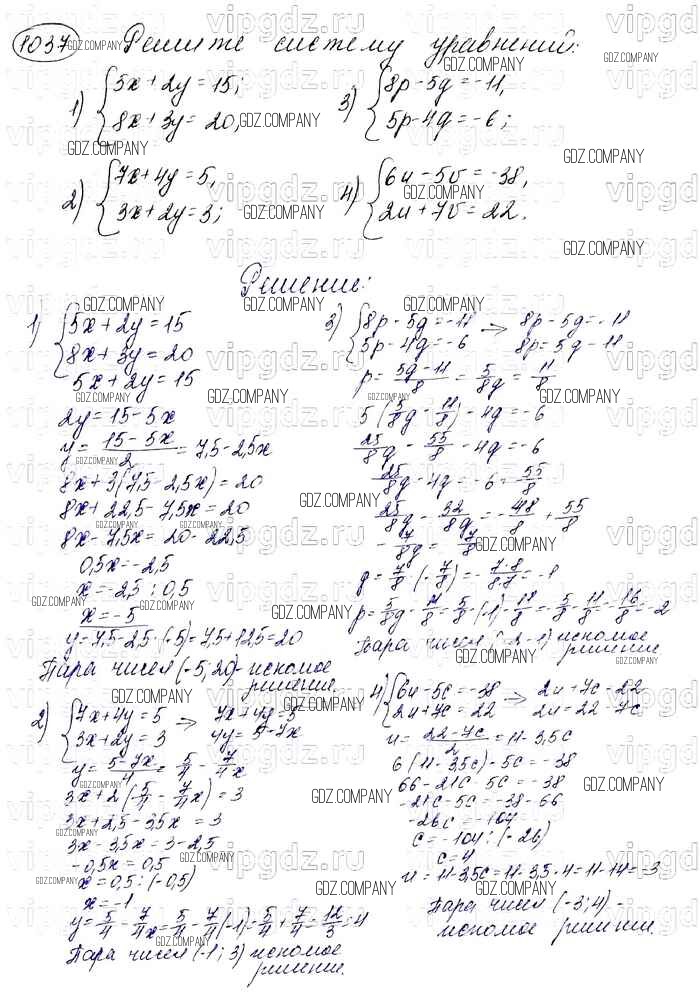 1037 Решите систему уравнений:
1) { 5x + 2y = 15;
8x + 3y = 20,
2) { 7x + 4y = 5,
3x + 2y = 3;
3) { 8p - 5q = -11,
5p - 4q = -6;
4) { 6u - 5v = -38,
2u + 7v = 22.
Решение:
1) { 5x + 2y = 15
8x + 3y = 20
5x + 2y = 15
2y = 15 - 5x
y = (15 - 5x)/2 = 7,5 - 2,5x
8x + 3(7,5 - 2,5x) = 20
8x + 22,5 - 7,5x = 20
8x - 7,5x = 20 - 22,5
0,5x = -2,5
x = -2,5 : 0,5
x = -5
y = 7,5 - 2,5 · (-5) = 7,5 + 12,5 = 20
Пара чисел (-5; 20) - искомое
решение.
2) { 7x + 4y = 5 → 7x + 4y = 5
3x + 2y = 3 4y = 5 - 7x
y = (5 - 7x)/4 = 5/4 - 7/4x
3x + 2(5/4 - 7/4x) = 3
3x + 2,5 - 3,5x = 3
3x - 3,5x = 3 - 2,5
-0,5x = 0,5
x = 0,5 : (-0,5)
x = -1
y = 5/4 - 7/4x = 5/4 - 7/4(-1) = 5/4 + 7/4 = 12/3 = 4
Пара чисел (-1; 3) искомое
решение.
3) { 8p - 5q = -11 → 8p - 5q = -11
5p - 4q = -6 8p = 5q - 11
p = (5q - 11)/8 = 5/8q = 11/8
5(5/8q - 11/8) - 4q = -6
25/8q - 55/8 - 4q = -6
25/8q - 4q = -6 = 55/8
25/8q - 32/8q = -48/8 + 55/8
-7/8q = 7/8
q = 7/8 · (-7/8) = -7·8/8·7 = -1
p = 5/8q - 11/8 = 5/8 · (-1) - 11/8 = -5/8 - 11/8 = -16/8 = -2
Пара чисел (-2; -1) искомое
решение
4) { 6u - 5c = -38 → 2u + 7c = 22
2u + 7c = 22 2u = 22 - 7c
u = (22 - 7c)/2 = 11 - 3,5c
6(11 - 3,5c) - 5c = -38
66 - 21c - 5c = -38
-21c - 5c = -38 - 66
-26c = -104
c = -104 : (-26)
c = 4
u = 11 - 3,5c = 11 - 3,5 · 4 = 11 - 14 = -3
Пара чисел (-3; 4) -
искомое решение